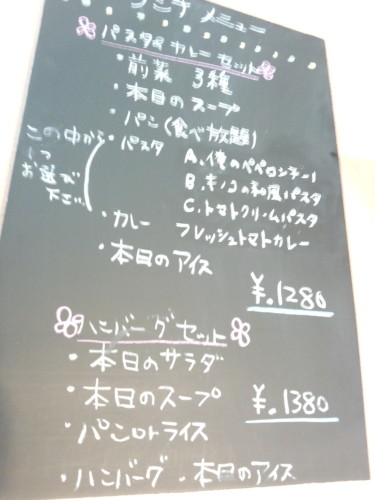 ランチメニュー
パスタorカレーセット
・前菜 3種
・本日のスープ
・パン(食べ放題)
この中から
1つ
お選び
下さい
・パスタ
A.僕のペペロンチーノ
B.キノコの和風パスタ
C.トマトクリームパスタ
・カレー フレッシュトマトカレー
・本日のアイス
¥.1280
ハンバーグセット
・本日のサラダ
・本日のスープ
¥.1380
・パンorライス
・ハンバーグ ・本日のアイス